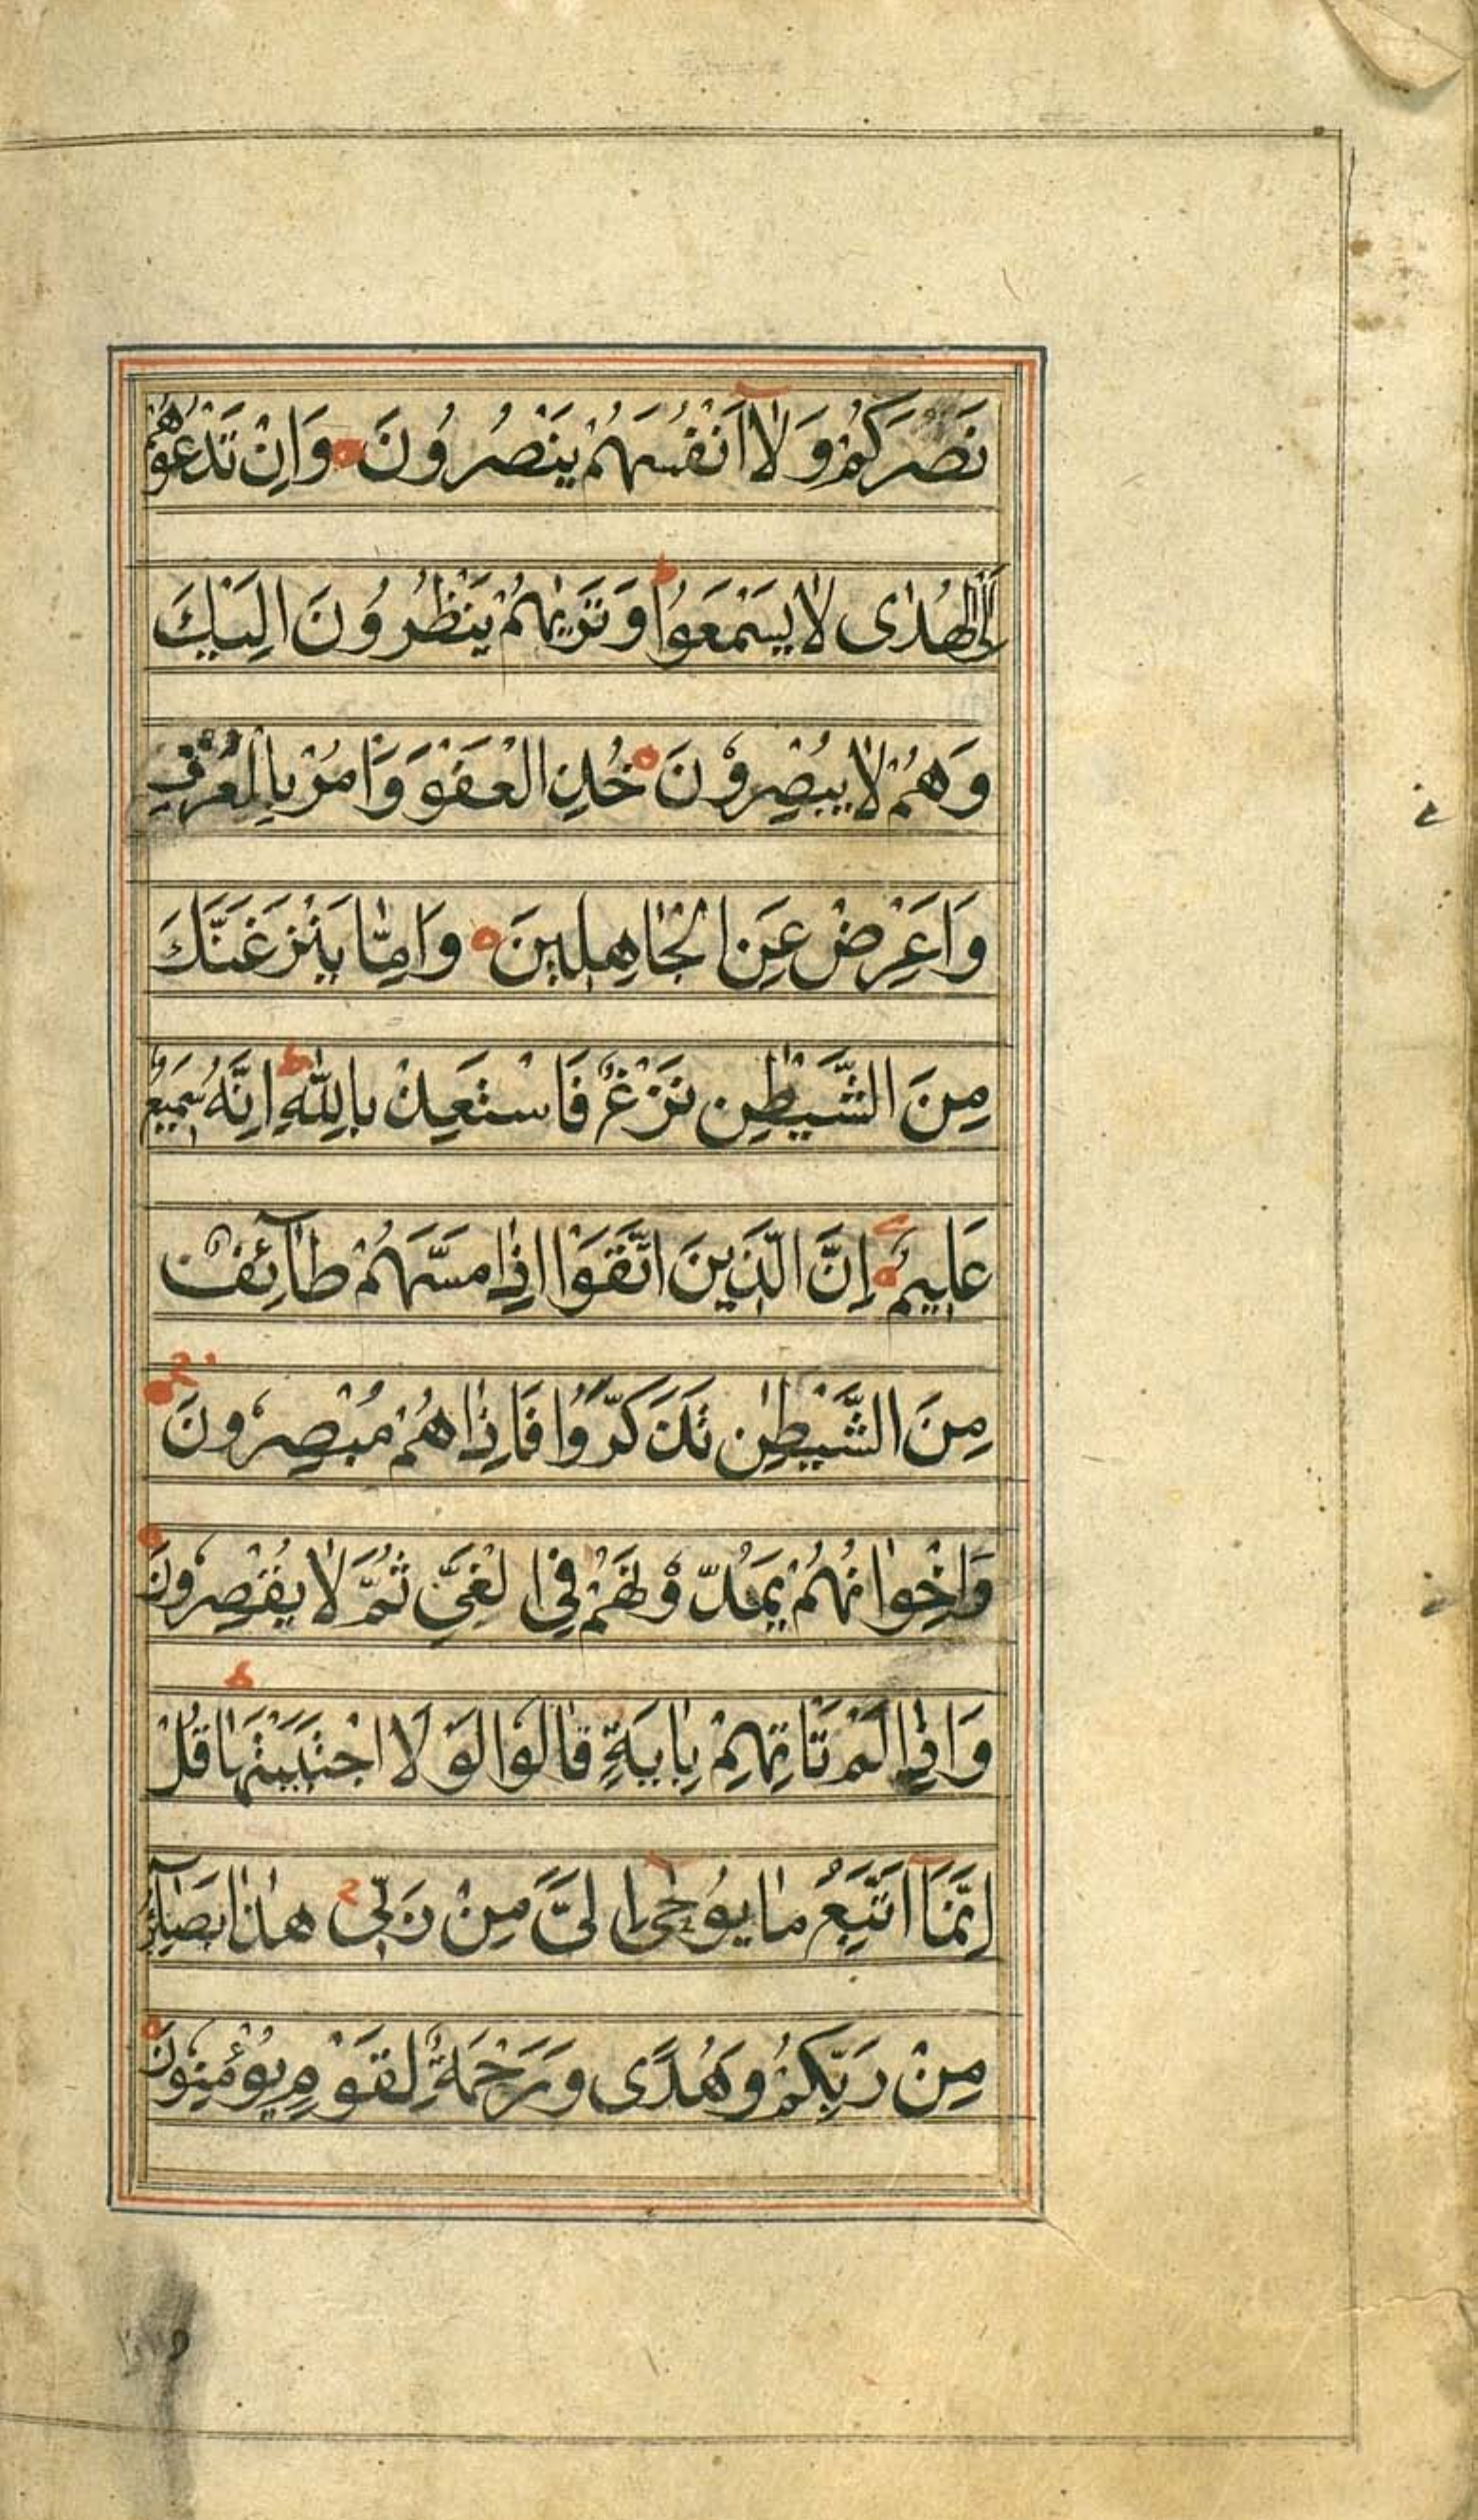 نَصْرَكُمْ وَلَآ اَنْفُسَهُمْ يَنْصُرُونَ وَاِنْ تَدْعُوهُمْ
اِلَى الْهُدٰى لَا يَسْمَعُوا ط وَتَرٰيهُمْ يَنْظُرُونَ اِلَيْكَ
وَهُمْ لَا يُبْصِرُونَ خُذِ الْعَفْوَ وَأْمُرْ بِالْعُرْفِ
وَاَعْرِضْ عَنِ الْجَاهِلِينَ وَاِمَّا يَنْزَغَنَّكَ
مِنَ الشَّيْطٰنِ نَزْغٌ فَاسْتَعِذْ بِاللّٰهِ ط اِنَّهُ سَمِيعٌ
عَلِيمٌ اِنَّ الَّذِينَ اتَّقَوْا اِذَا مَسَّهُمْ طَآئِفٌ
مِنَ الشَّيْطٰنِ تَذَكَّرُوا فَاِذَا هُمْ مُبْصِرُونَ
وَاِخْوَانُهُمْ يَمُدُّونَهُمْ فِي الْغَيِّ ثُمَّ لَا يُقْصِرُونَ
وَاِذَا لَمْ تَاْتِهِمْ بِاٰيَةٍ قَالُوا لَوْلَا اجْتَبَيْتَهَا ط قُلْ
اِنَّمَآ اَتَّبِعُ مَا يُوحٰٓى اِلَيَّ مِنْ رَبِّي هٰذَا بَصَآئِرُ
مِنْ رَبِّكُمْ وَهُدًى وَرَحْمَةٌ لِقَوْمٍ يُؤْمِنُونَ